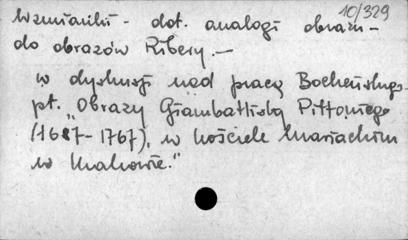 10/329
Wzmianki - dot. analogi obrazu -
do obrazów Ribery. —
w dyskusji nad pracą Bocheńskiego
pt. "Obrazy Giambattisty Pittoniego
(1687-1767), w kościele Mariackim
w Krakowie."